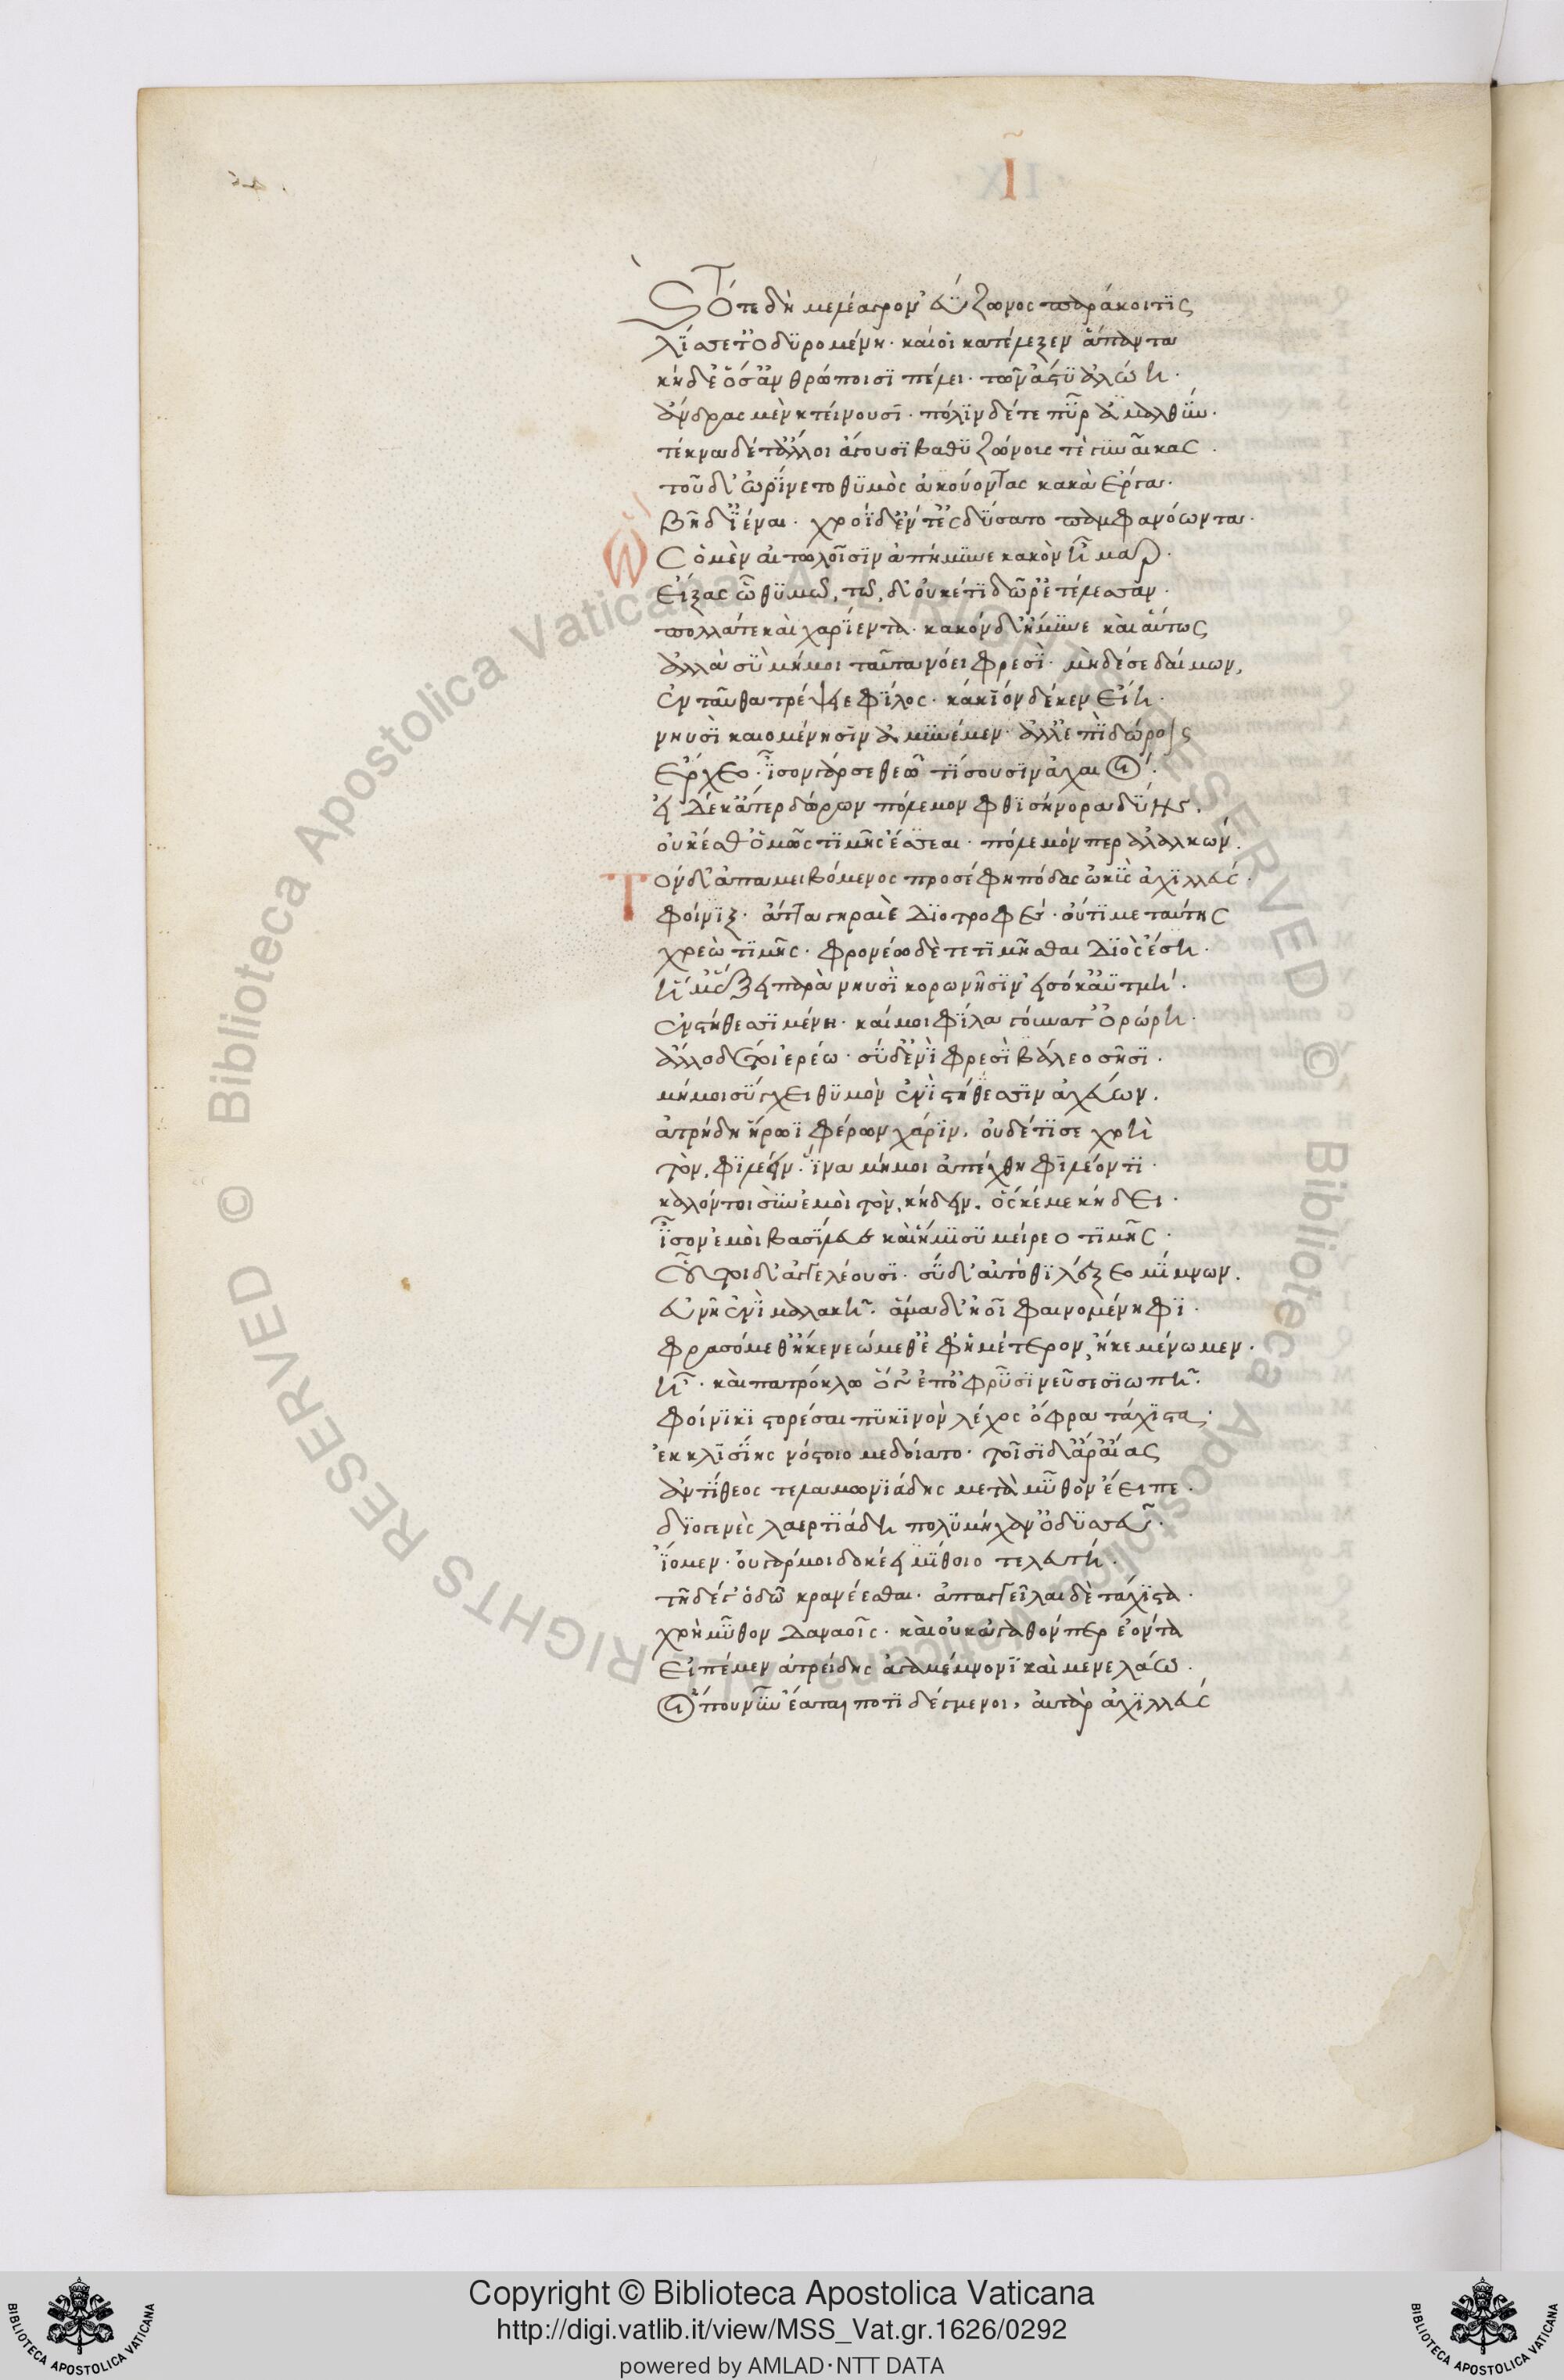 Ι
Τότε δὴ μελέαγρον ἐΰζωνος παράκοιτις
λίσσετ' ὀδυρομένη· καί οἱ κατέλεξεν ἅπαντα
κήδε' ὅσ' ἀνθρώποισι πέλει· τῶν ἄστυ ἁλώῃ·
ἄνδρας μὲν κτείνουσι· πόλιν δέ τε πῦρ ἀμαθύνει·
τέκνα δέ τ' ἄλλοι ἄγουσι βαθυζώνους τὲ γυναῖκας·
τοῦ δ' ὠρίνετο θυμὸς ἀκούοντος κακὰ ἔργα·
βῆ δ' ἰέναι· χροῒ δ' ἔντε' ἐδύσατο παμφανόωντα·
Ὣς ὁ μὲν αἰτωλοῖσιν ἀπήμυνε κακὸν ἦμαρ·
εἴξας ᾧ θυμῷ, τῷ, δ' οὐκέτι δῶρ' ἐτέλεσσαν·
πολλά τε καὶ χαρίεντα· κακὸν δ' ἤμυνε καὶ αὔτως
ἀλλὰ σὺ μή μοι ταῦτα νόει φρεσὶ· μὴ δέ σε δαίμων,
ἐνταῦθα τρέψειε φίλος· κάκιον δέ κεν εἴη·
νηυσὶ καιομένῃσιν ἀμυνέμεν· ἀλλ' ἐπὶ δώροις
ἔρχεο· ἶσον γάρ σε θεῷ τίσουσιν ἀχαιοί·
εἰ δέ κ' ἄτερ δώρων πόλεμον φθισήνορα δύῃς,
οὐκέθ' ὁμῶς τιμῆς ἔσεαι· πόλεμόν περ ἀλαλκών.
Τὸν δ' ἀπαμειβόμενος προσέφη πόδας ὠκὺς ἀχιλλεύς·
φοίνιξ· ἄττα γηραιὲ διοτρεφές· οὔτι με ταύτης
χρεὼ τιμῆς· φρονέω δὲ τετιμῆσθαι διὸς αἴσῃ·
ἥ μ' ἕξει παρὰ νηυσὶ κορωνῇσιν εἰσόκ' ἀϋτμή·
ἐν στήθεσσι μένῃ· καί μοι φίλα γούνατ' ὀρώρῃ·
ἄλλο δέ τοι ἐρέω· σὺ δ' ἐνὶ φρεσὶ βάλεο σῇσι·
μή μοι σύγχει θυμὸν ἐνὶ στήθεσσιν ἀχεύων.
ἀτρείδῃ ἥρωϊ φέρων χάριν. οὐδέ τί σε χρὴ
τὸν, φιλέειν· ἵνα μή μοι ἀπέχθῃ φιλέοντι·
καλόν τοι σὺν ἐμοὶ τὸν, κήδειν, ὅς κέ με κήδει·
ἶσον ἐμοὶ βασίλευε καὶ ἥμισυ μείρεο τιμῆς·
οὗτοι δ' ἀγγελέουσι· σὺ δ' αὐτόθι λέξεο μίμνων.
εὐνῇ ἐνὶ μαλακῇ· ἅμα δ' ἠοῖ φαινομένηφι·
φρασόμεθ' ἤ κε νεώμεθ' ἐφ' ἡμέτερον, ἤ κε μένωμεν·
ἦ· καὶ πατρόκλῳ ὅγ' ἐπ' ὀφρύσι νεῦσε σιωπῇ·
φοίνικι στορέσαι πυκινὸν λέχος ὄφρα τάχιστα
ἐκ κλισίης νόστοιο μεδοίατο· τοῖσι δ' ἄρ' αἴας
ἀντίθεος τελαμωνιάδης μετὰ μῦθον ἔειπε·
διογενὲς λαερτιάδη πολυμήχαν' ὀδυσσεῦ·
ἴομεν· οὐ γάρ μοι δοκέει μύθοιο τελευτή·
τῇδέ γ' ὁδῷ κρανέεσθαι· ἀπαγγεῖλαι δὲ τάχιστα·
χρὴ μῦθον δαναοῖς· καὶ οὐκ ἀγαθόν περ ἐόντα
οἵ που νῦν ἕαται ποτιδέγμενοι, αὐτὰρ ἀχιλλεύς
Copyright © Biblioteca Apostolica Vaticana
http://digi.vatlib.it/view/MSS_Vat.gr.1626/0292
powered by AMLAD·NTT DATA